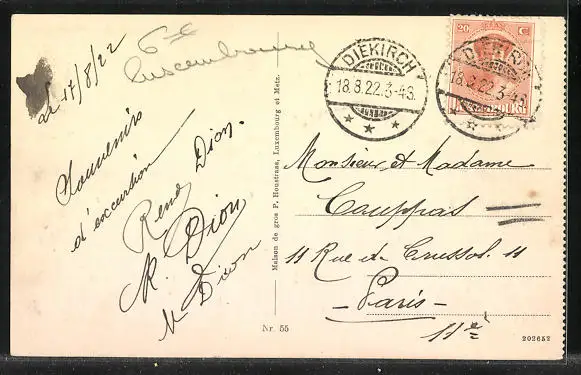 Gd Luxembourg
le 17/8/22
Souvenirs
d'excursion
René Dion.
R. Dion
M Dion
Maison de gros P. Houstraas, Luxembourg et Metz.
Nr. 55
DIEKIRCH
18.8.22.3-4S.
* * *
20 C
LUXEMBOURG
DIEKIRCH
18.8.22.3-4S.
Monsieur et Madame
Cauppas
11 Rue de Crussol. 11
- Paris -
11e
202652